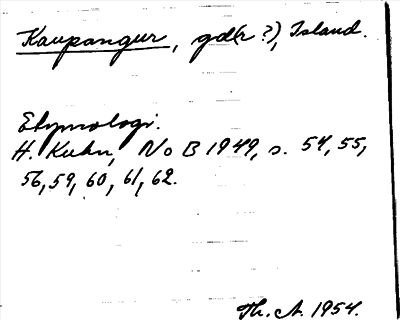 Kaupangur, gd(r ?), Island.
Etymologi.
H. Kuhn, NoB 1949, s. 54, 55,
56, 59, 60, 61, 62.
Th. A. 1954.